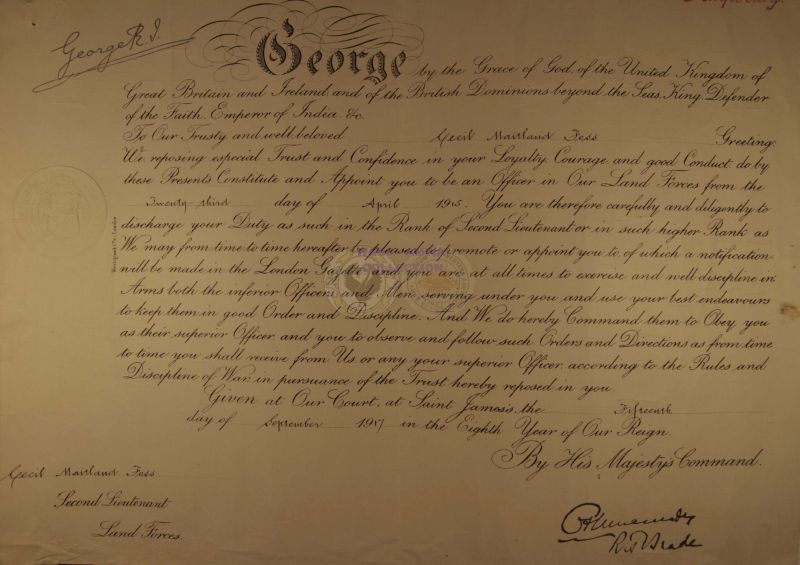 George R.I.
George by the Grace of God, of the United Kingdom of
Great Britain and Ireland and of the British Dominions beyond the Seas, King, Defender
of the Faith, Emperor of India, &c.
To Our Trusty and well beloved Cecil Maitland Fess Greeting:
We, reposing especial Trust and Confidence in your Loyalty, Courage, and good Conduct, do by
these Presents Constitute and Appoint you to be an Officer in Our Land Forces from the
Twenty-third day of April 19 . You are therefore carefully and diligently to
discharge your Duty as such in the Rank of Second Lieutenant or in such higher Rank as
We may from time to time hereafter be pleased to promote or appoint you to, of which a notification
will be made in the London Gazette, and you are at all times to exercise and well discipline in
Arms both the inferior Officers and Men serving under you and use your best endeavours
to keep them in good Order and Discipline. And We do hereby Command them to Obey you
as their superior Officer, and you to observe and follow such Orders and Directions as from time
to time you shall receive from Us, or any your superior Officer, according to the Rules and
Discipline of War, in pursuance of the Trust hereby reposed in you.
Given at Our Court, at Saint James's, the Fifteenth
day of September 1917 in the Eighth Year of Our Reign.
By His Majesty's Command.
Cecil Maitland Fess
Second Lieutenant
Land Forces.